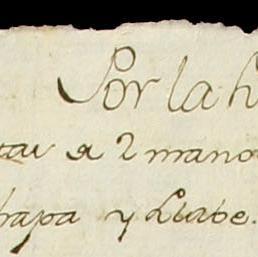 Por la h
tar a 2 mano
hapa y Llabe.